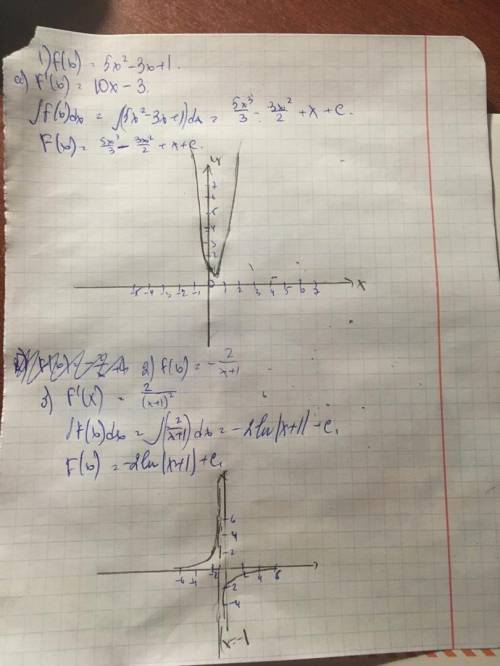 1) f(x) = 5x² - 3x + 1.
a) F'(x) = 10x - 3.
∫f(x)dx = ∫(5x² - 3x + 1)dx = 5x³/3 - 3x²/2 + x + C.
F(x) = 5x³/3 - 3x²/2 + x + C.
y
7
6
5
4
3
2
-5 -4 -3 -2 -1 0 1 2 3 4 5 6 7 x
2) f(x) = - 2/(x+1)
3) F'(x) = 2/(x+1)²
∫f(x)dx = ∫(2/(x+1))dx = -2ln|x+1| + C,
F(x) = -2ln|x+1| + C,
6
4
2
-6 -4 -2 2 4 6
-2
-4
x=-1